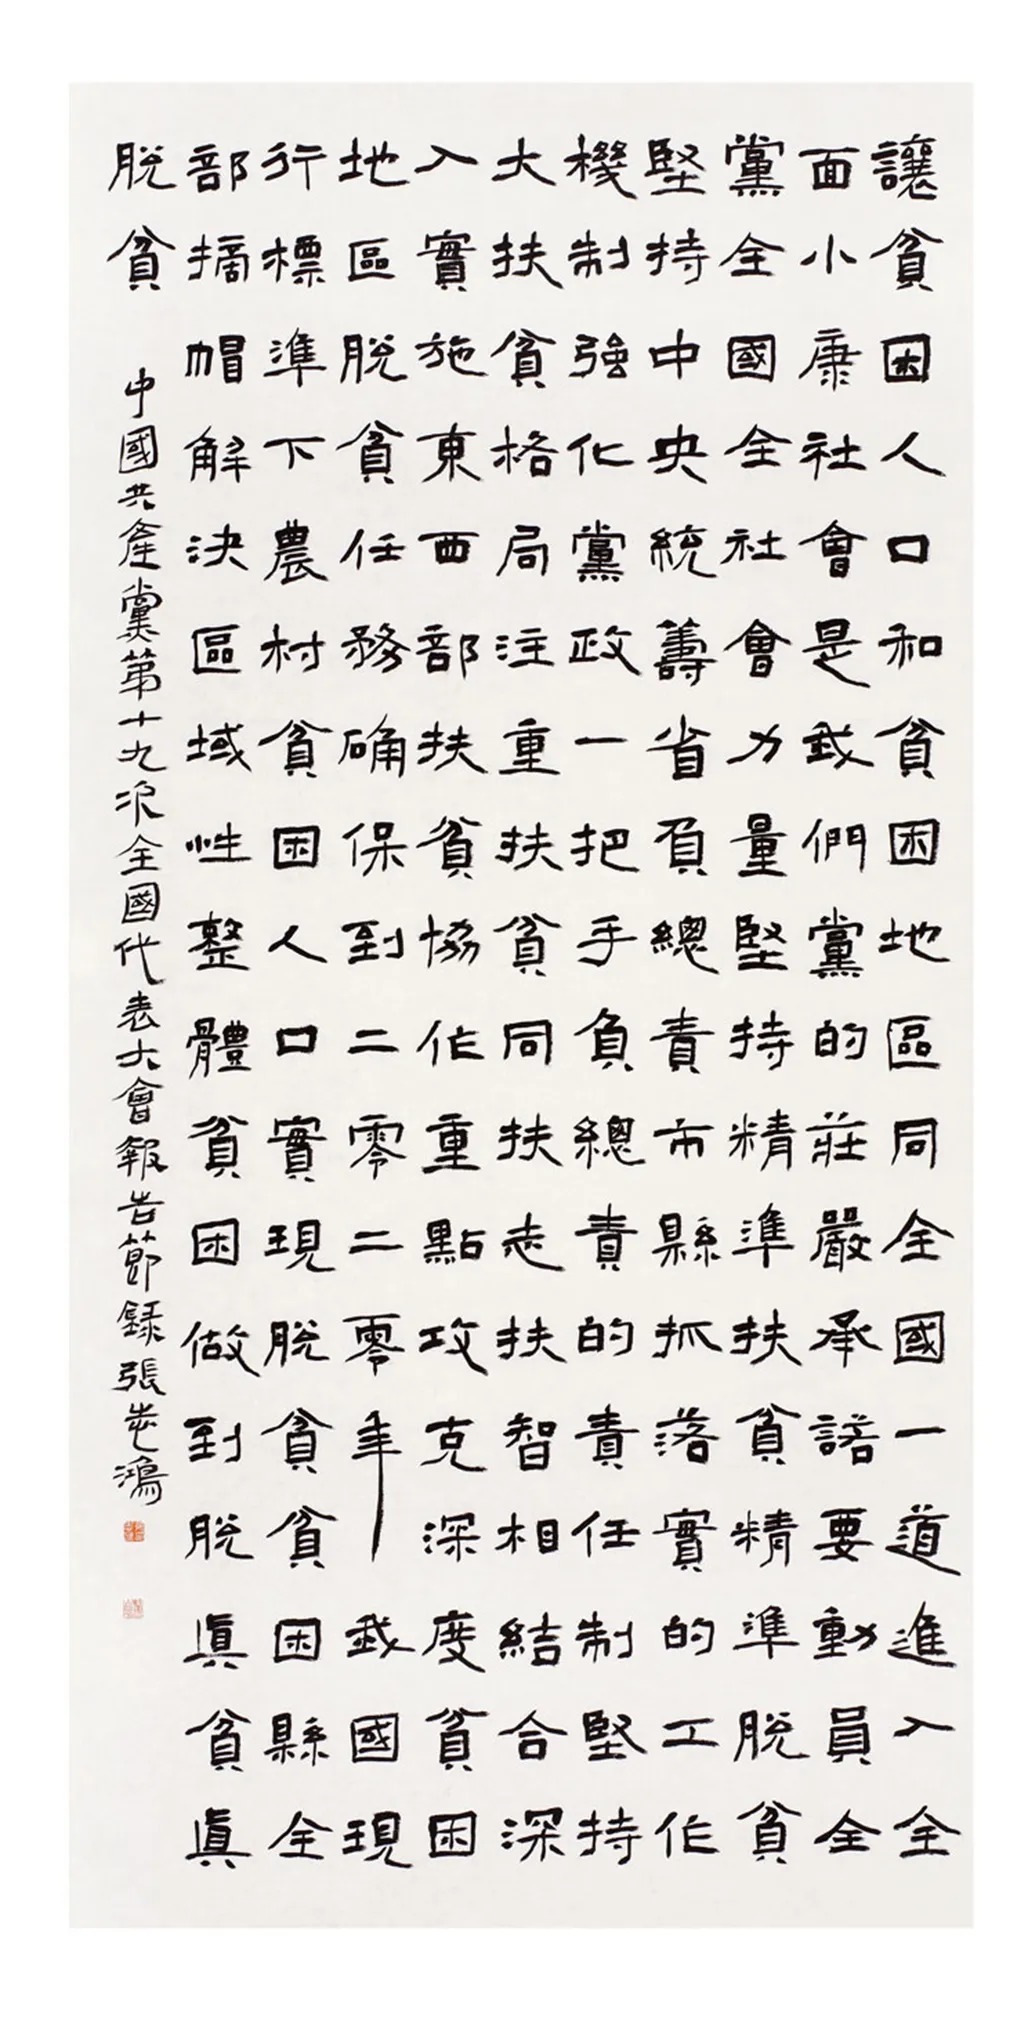 讓貧困人口和貧困地區同全國一道進入全
面小康社會是我們黨的莊嚴承諾要動員全
黨全國全社會力量堅持精準扶貧精準脫貧
堅持中央統籌省負總責市縣抓落實的工作
機制強化黨政一把手負總責的責任制堅持
大扶貧格局注重扶貧同扶志扶智相結合深
入實施東西部扶貧協作重點攻克深度貧困
地區脫貧任務确保到二零二零年我國現
行標準下農村貧困人口實現脫貧貧困縣全
部摘帽解決區域性整體貧困做到脫真貧真
脫貧
中國共產黨第十九次全國代表大會報告節錄張志鴻